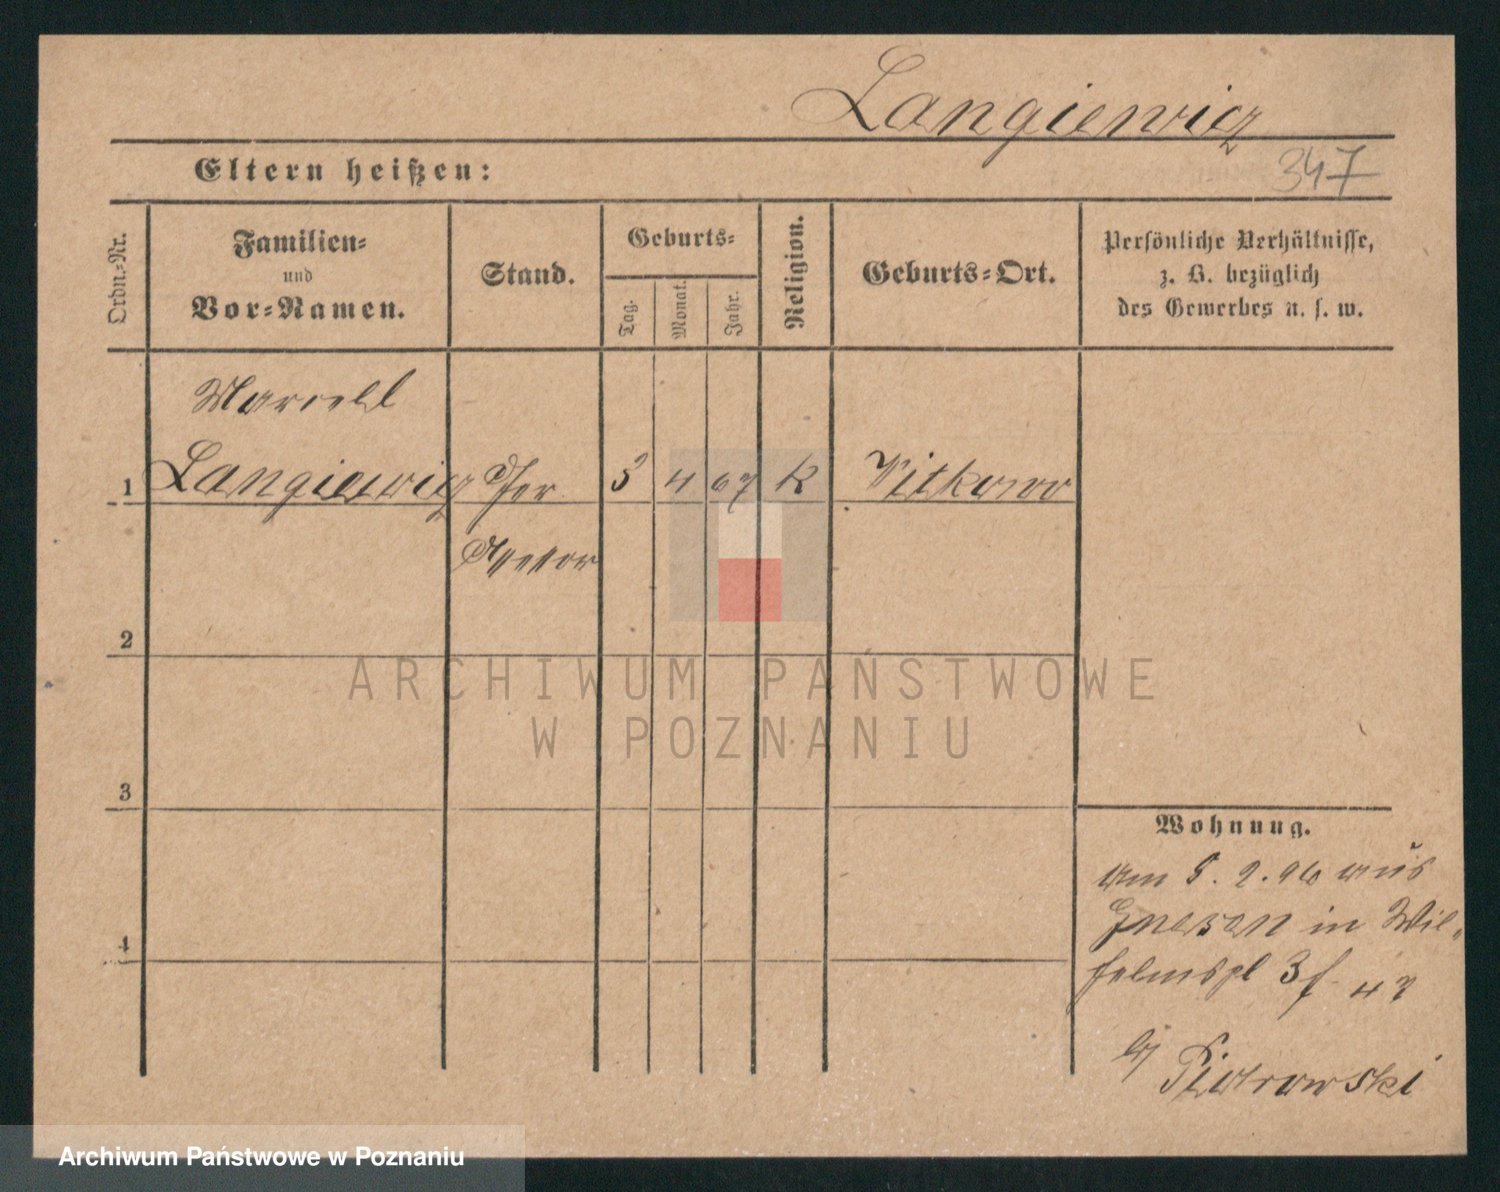 Langiewicz
Eltern heißen:
347
Ordn.-Nr.
Familien-
und
Vor-Namen.
Stand.
Geburts-
Tag.
Monat.
Jahr.
Religion.
Geburts-Ort.
Persönliche Verhältnisse,
z. B. bezüglich
des Gewerbes u. s. w.
Marcell
1 Langiewicz 3 4 67 K Witkowo
Assessor
2
3
4
Wohnung.
am 5. 2. 96 aus
Gnesen in Wil-
helmspl 3
Piotrowski
ARCHIWUM PAŃSTWOWE
W POZNANIU
Archiwum Państwowe w Poznaniu